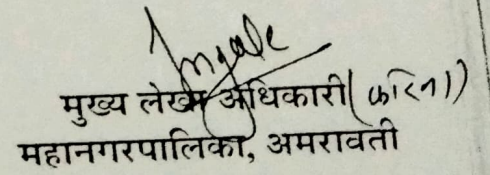 मुख्य लेखा अधिकारी( करिता)
महानगरपालिका, अमरावती